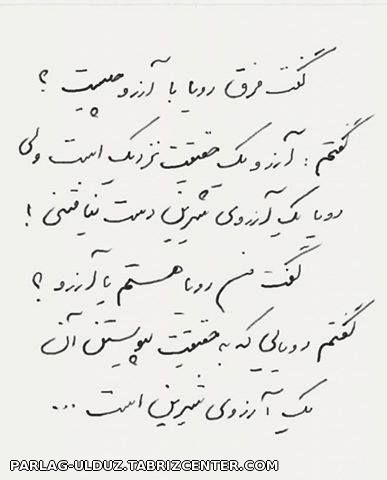 گفت فرق رویا با آرزو چیست ؟
گفتم : آرزو یک حقیقت نزدیک است ولی
رویا یک آرزوی شیرین دست نیافتنی !
گفت من رویا هستم یا آرزو ؟
گفتم رویایی که به حقیقت پیوستن آن
یک آرزوی شیرین است ...
PARLAG-ULDUZ.TABRIZCENTER.COM